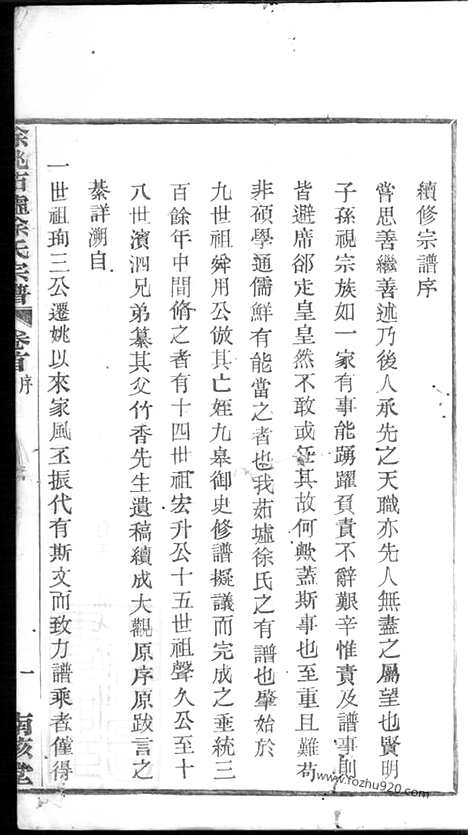 續修宗譜序
嘗思善繼善述乃後人承先之天職亦先人無盡之屬望也賢明
子孫視宗族如一家有事能踴躍負責不辭艱辛惟責及譜事則
皆避席郤走皇皇然不敢或任其故何歟蓋斯事也至重且難苟
非碩學通儒鮮有能當之者也我茹墟徐氏之有譜也肇始於
九世祖舜用公倣其亡姪九皋御史修譜擬議而完成之垂統三
百餘年中間脩之者有十四世祖宏升公十五世祖聲久公至十
八世濱泗兄弟纂其父竹香先生遺稿續成大觀原序原跋言之
綦詳溯自
一世祖珣三公遷姚以來家風丕振代有斯文而致力譜乘者僅得
餘姚茹墟徐氏宗譜
卷首
序
一
南陔堂
www.fozhu920.com